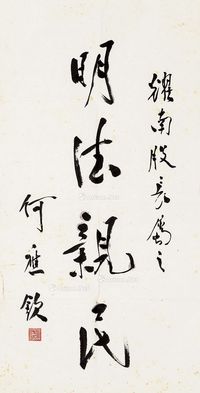 耀南股長屬之
明德親民
何應欽